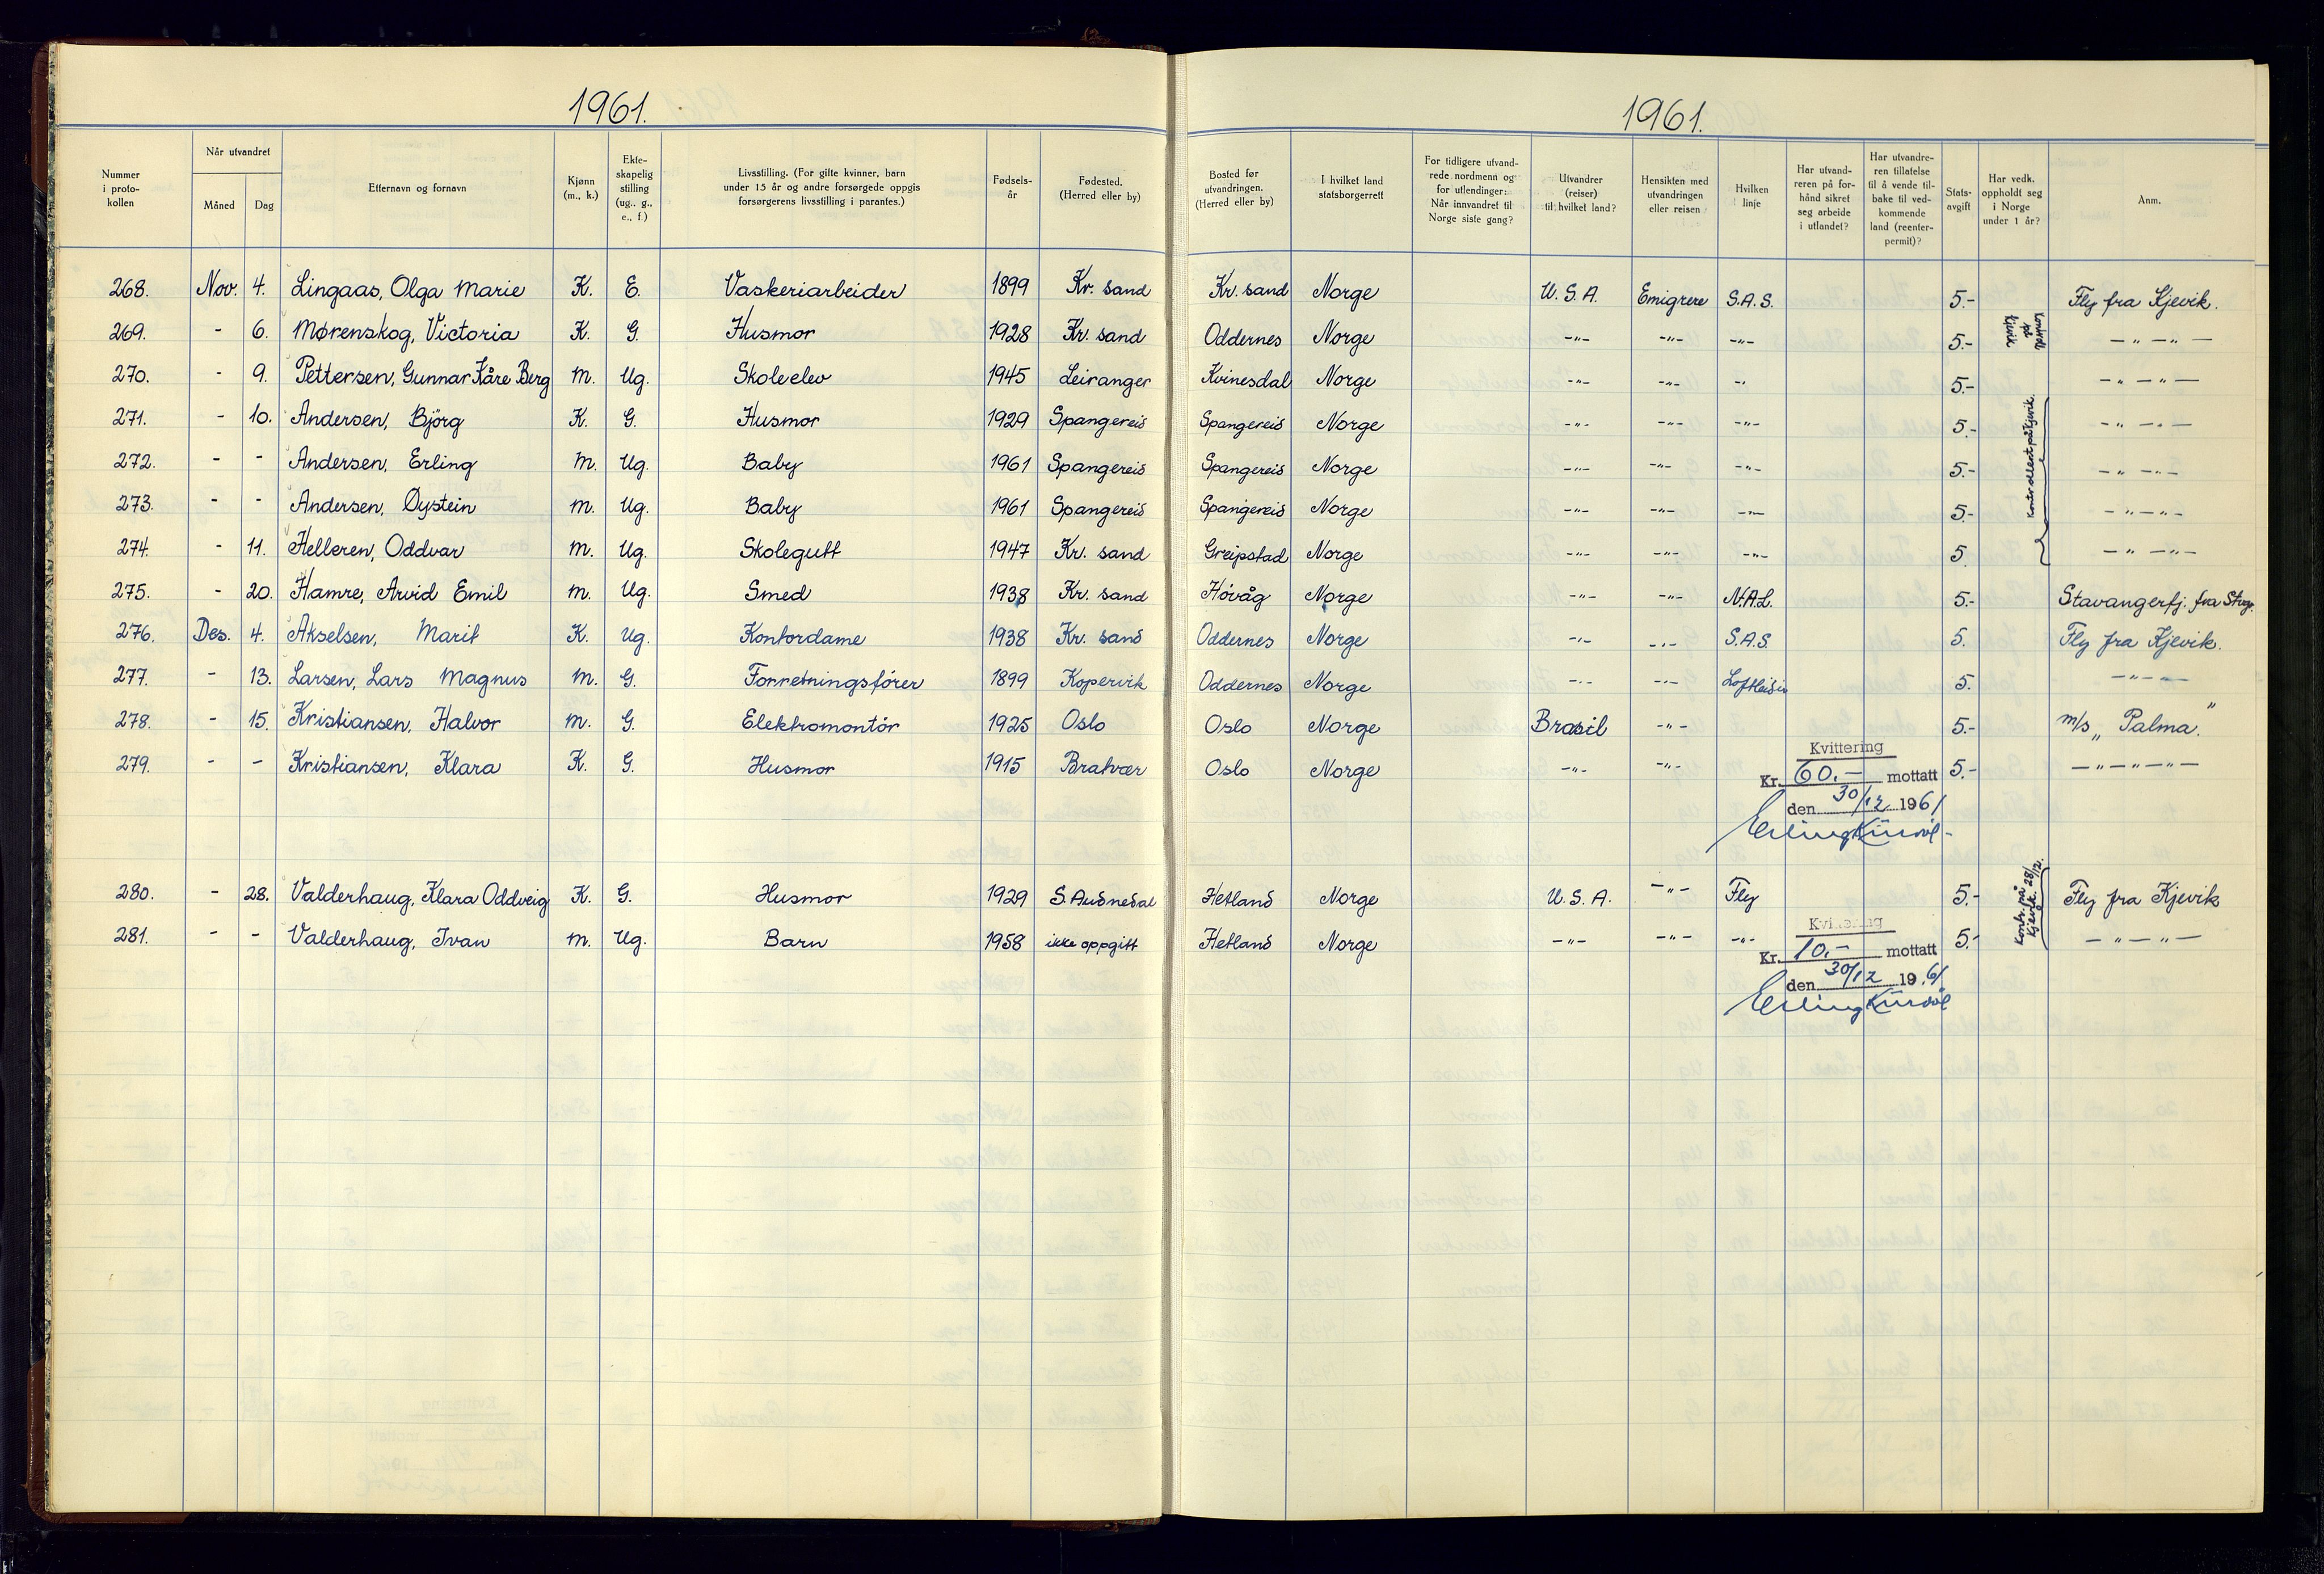 1961.
1961.
Nummer i proto-kollen | Når utvandret Måned Dag | Etternavn og fornavn | Kjønn (m., k.) | Ekte-skapelig stilling (ug., g., e., f.) | Livsstilling. (For gifte kvinner, barn under 15 år og andre forsørgede oppgis forsørgerens livsstilling i parantes.) | Fødsels-år | Fødested. (Herred eller by) | Bosted før utvandringen. (Herred eller by) | I hvilket land statsborgerrett | For tidligere utvand-rede nordmenn og for utlendinger: Når innvandret til Norge siste gang? | Utvandrer (reiser) til hvilket land? | Hensikten med utvandringen eller reisen | Hvilken linje | Har utvand-reren på for-hånd sikret seg arbeide i utlandet? | Har utvandre-ren tillatelse til å vende til-bake til ved-kommende land (reenter-permit)? | Stats-avgift | Har vedk. oppholdt seg i Norge under 1 år? | Anm.
268. Nov. 4. Lingaas, Olga Marie K. E. Vaskeriarbeider 1899 Kr. sand Kr. sand Norge U.S.A. Emigrere S.A.S. 5.- Fly fra Kjevik.
269. - 6. Mørenskog, Victoria K. G. Husmor 1928 Kr. sand Oddernes Norge -"- -"- -"- 5.- -"-"-
270. - 9. Pettersen, Gunnar Kåre Berg m. Ug. Skoleelev 1945 Leiranger Kvinesdal Norge -"- -"- -"- 5.- -"-"-
271. - 10. Andersen, Björg K. G. Husmor 1929 Spangereid Spangereid Norge -"- -"- -"- 5.- Kontrollert på Kjevik. -"-"-
272. - - Andersen, Erling m. Ug. Baby 1961 Spangereid Spangereid Norge -"- -"- -"- 5.- -"-"-
273. - - Andersen, Øystein m. Ug. Baby 1961 Spangereid Spangereid Norge -"- -"- -"- 5.- -"-"-
274. - 11. Helleren, Oddvar m. Ug. Skolegutt 1947 Kr. sand Greipstad Norge -"- -"- -"- 5. -"-"-
275. - 20. Hamre, Arvid Emil m. Ug. Smed 1938 Kr. sand Hövåg Norge -"- -"- N.A.L. 5.- Stavangerfj. fra Stvgr.
276. Des. 4. Akselsen, Marit K. Ug. Kontordame 1938 Kr. sand Oddernes Norge -"- -"- S.A.S. 5. Fly fra Kjevik.
277. - 13. Larsen, Lars Magnus m. G. Forretningsfører 1899 Kopervik Oddernes Norge -"- -"- Loftleidir 5. -"-"-
278. - 15. Kristiansen, Halvor m. G. Elektromontör 1925 Oslo Oslo Norge Brasil -"- 5.- m/s „Palma."
279. - - Kristiansen, Klara K. G. Husmor 1915 Bratvær Oslo Norge -"- -"- 5.- -"-"-"-
Kvittering
Kr. 60.- mottatt
den 30/12 1961
280. - 28. Valderhaug, Klara Oddveig K. G. Husmor 1929 S. Audnedal Hetland Norge U.S.A. -"- Fly 5.- Kontr. på Kjevik. 28/12. Fly fra Kjevik
281. - - Valderhaug, Ivan m. Ug. Barn 1958 ikke oppgitt Hetland Norge -"- -"- -"- 5.- -"-"-
Kvittering
Kr. 10.- mottatt
den 30/12 1961